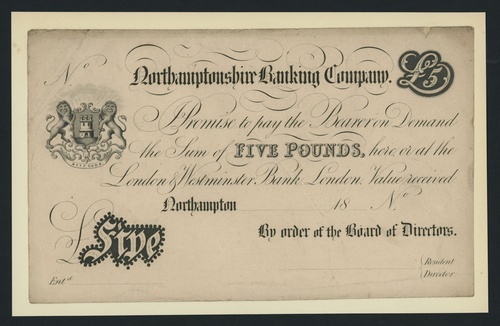 No
Northamptonshire Banking Company.
£5
I Promise to pay the Bearer on Demand
the Sum of FIVE POUNDS, here or at the
London & Westminster Bank London. Value received
Northampton 18 No
£ Five
By order of the Board of Directors.
Entd.
Resident
Director